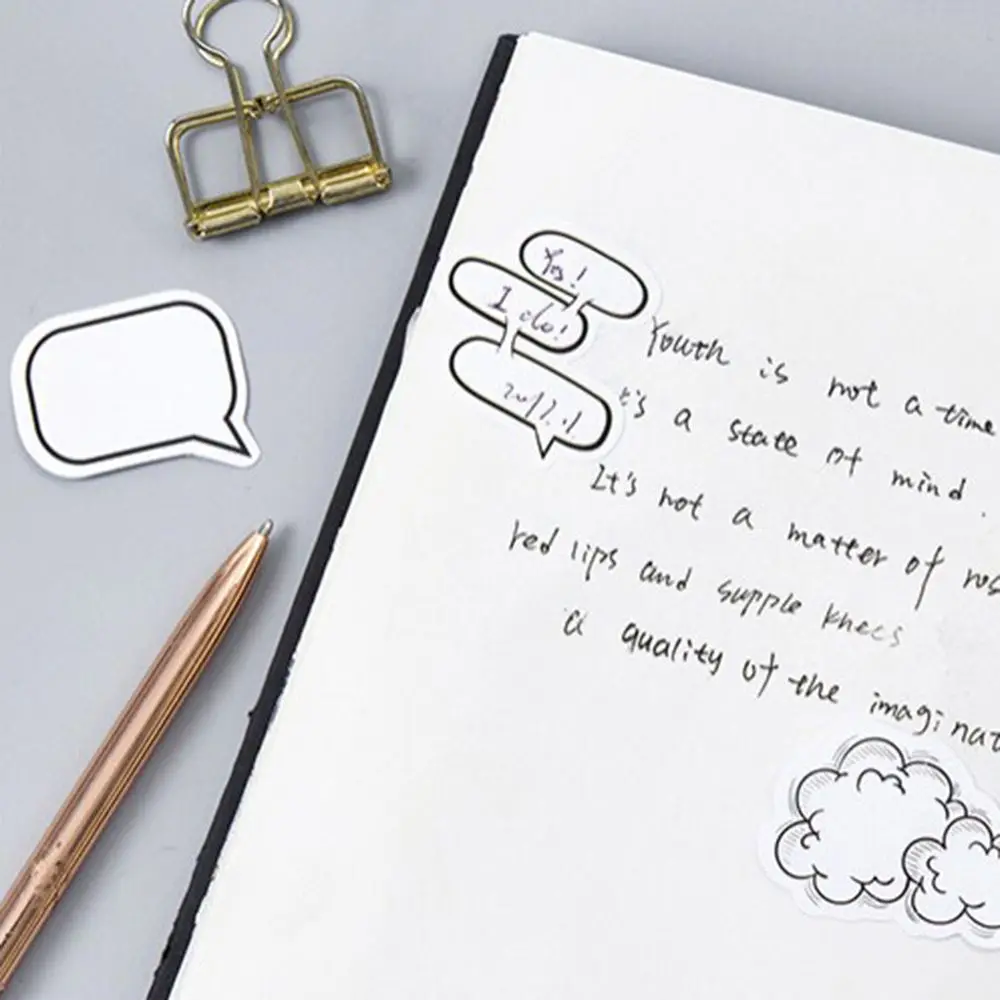 Yes!
I do!
2017.1
Youth is not a time
t's a state of mind.
It's not a matter of ros
red lips and supple knees
a quality of the imaginat